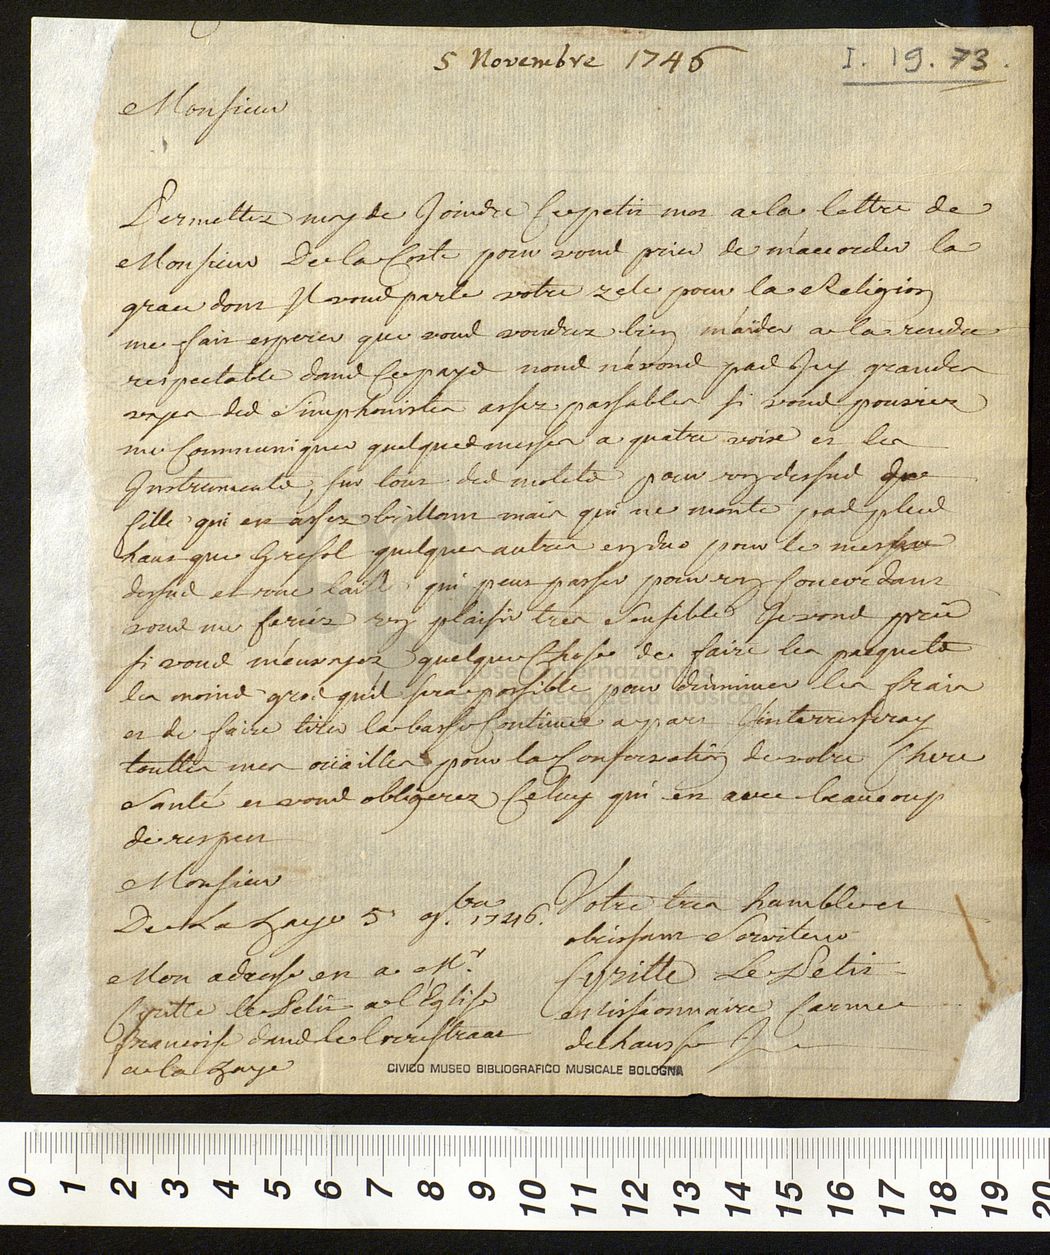 5 Novembre 1746
I. 19. 73.
Monsieur
Permettez moy de Joindre Ce petit mot a la lettre de
Monsieur De la Coste pour vous prier de m'accorder la
grace dont Il vous parle votre zele pour la Religion
me fait esperer que vous voudrez bien m'aider a la rendre
respectable dans Ce pays nous n'avons pas Icy grandes
voyes des Simphonistes assez passables si vous pouviez
me Communiquer quelques messes a quatre voix et les
Instruments, sur tout des motets pour un dessus de
fille qui est assez brillant mais qui ne monte pas plus
haut que Gresol quelques autres en duo pour le mesme
dessus et une taille qui peut passer pour un Concordant
vous me feriez un plaisir tres Sensible Je vous prie
si vous m'envoyez quelque Chose de faire les paquets
les moins gros qu'il sera possible pour diminuer les frais
et de faire tirer la basse Continue a part J'interresseray
touttes mes ouailles pour la Conservation de votre Chere
Santé et vous obligerez Celuy qui est avec beaucoup
de respect
Monsieur
De La haye 5 9.bre 1746.
Votre tres humble et
obeissant Serviteur
Cyrille Le Petit
missionnaire Carme
dechaussé
Mon adresse est a Mr.
Cyrille le Petit a l'Eglise
francoise dans le
a la haye
CIVICO MUSEO BIBLIOGRAFICO MUSICALE BOLOGNA
museo internazionale
e biblioteca della musica
0 1 2 3 4 5 6 7 8 9 10 11 12 13 14 15 16 17 18 19 20